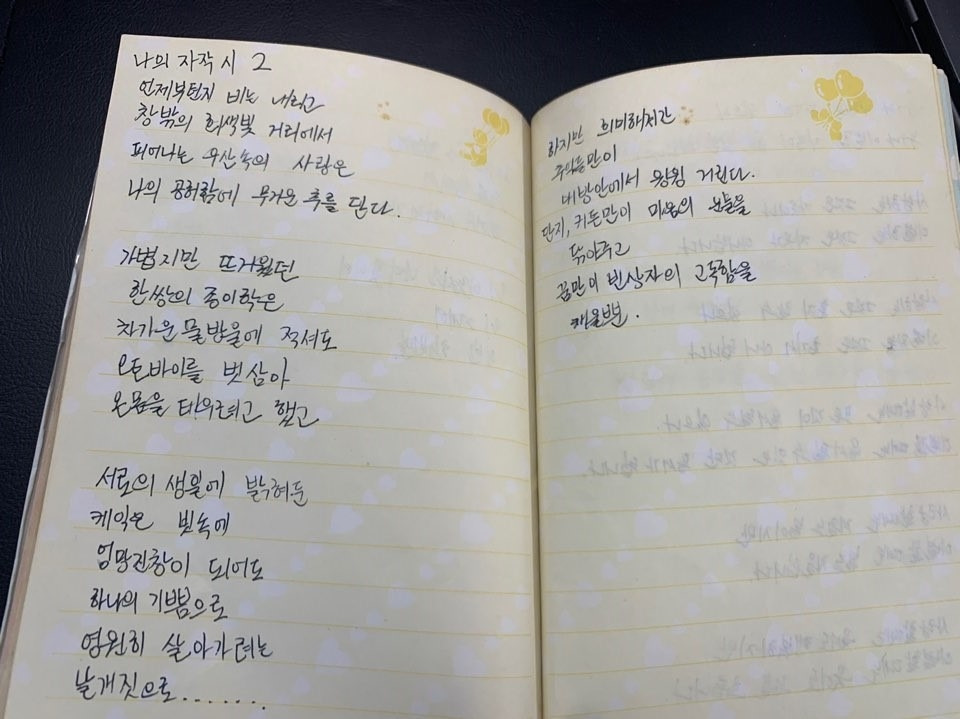 나의 자작시 2
언제부턴지 비는 내리고
창밖의 회색빛 거리에서
피어나는 우산속의 사랑은
나의 공허함에 무거운 추를 단다.
가볍지만 뜨거웠던
한쌍의 종이학은
차가운 물방울에 적셔도
오토바이를 벗삼아
온몸을 태우려고 했고
서로의 생일에 밝혀둔
케익은 빗속에
엉망진창이 되어도
하나의 기쁨으로
영원히 살아가려는
날개짓으로.......
하지만 희미해진
추억들만이
내방안에서 왕왕 거린다.
단지, 커튼만이 마음의 눈들을
닦아주고
꿈만이 빈상자의 고독함을
채울뿐.